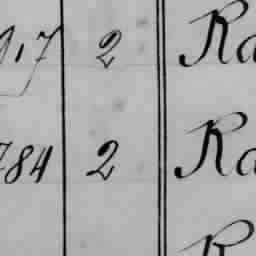 17 2 Ra
784 2 Ra
R